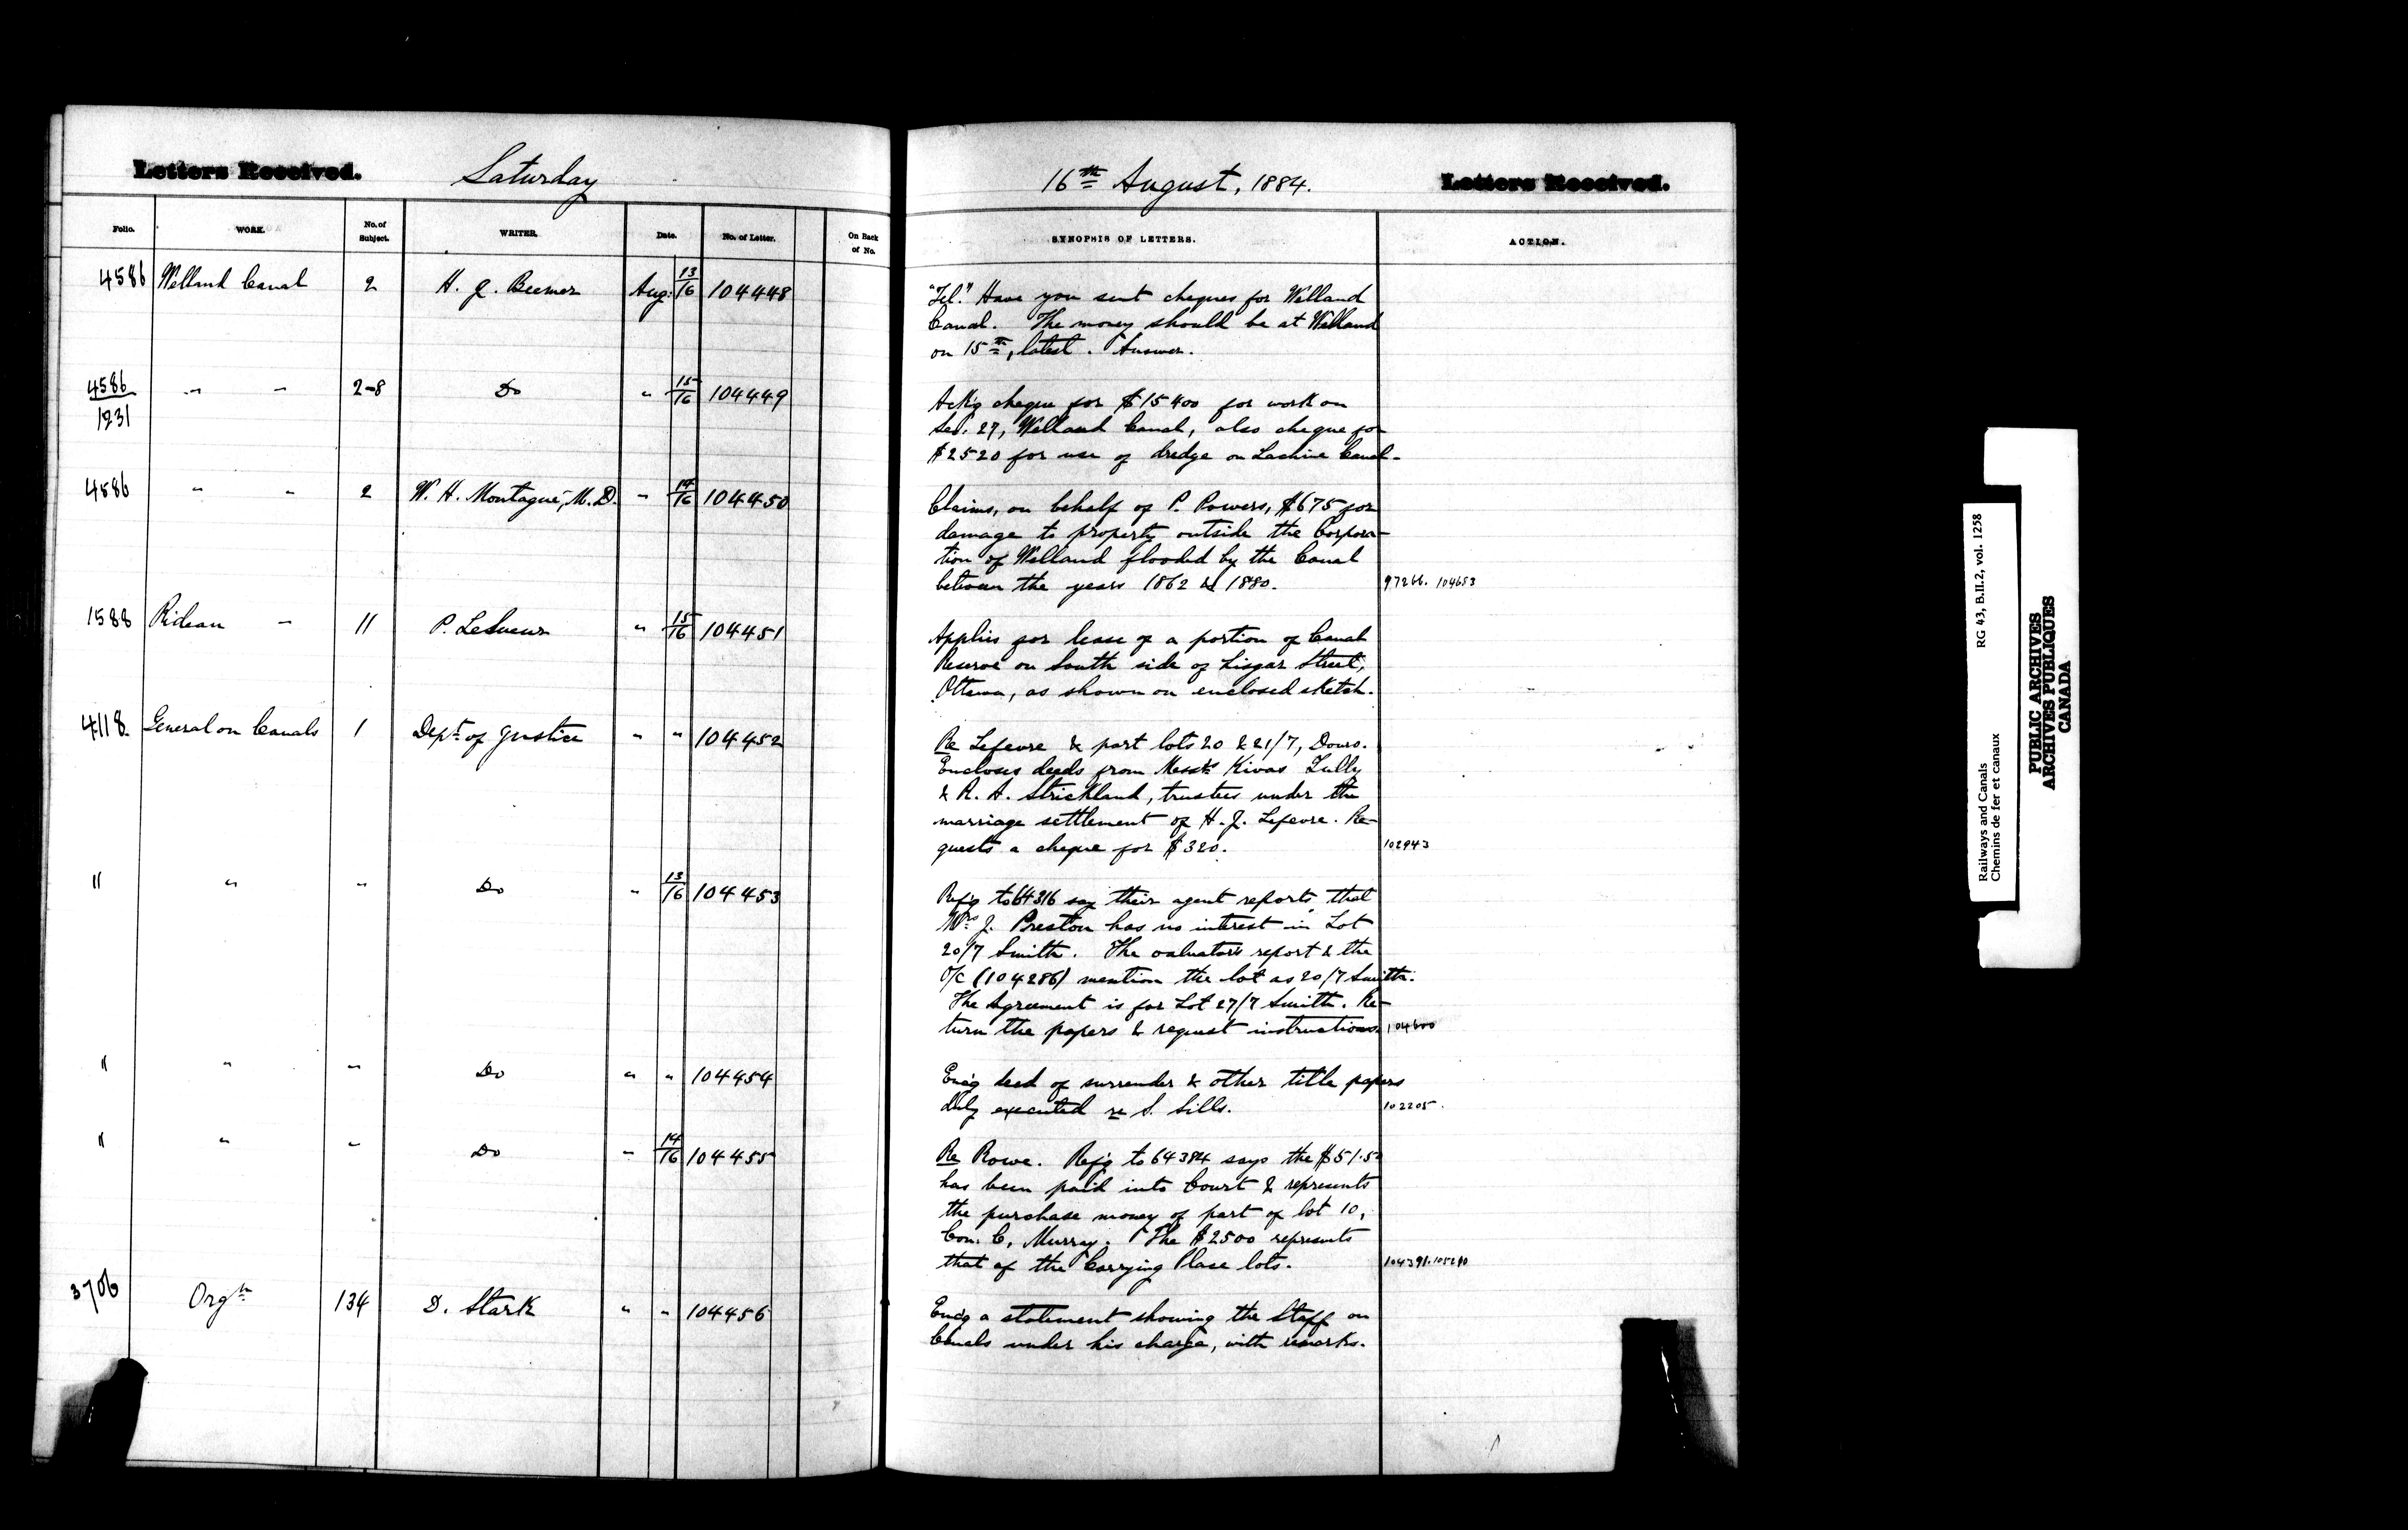 Letters Received.
Saturday
16th August, 1884.
Letters Received.
Folio. WORK. No. of Subject. WRITER. Date. No. of Letter. On Back of No. SYNOPSIS OF LETTERS. ACTION.
4586 Welland Canal 2 H. J. Beemer Aug: 13/16 104448
"Tel." Have you sent cheques for Welland
Canal. The money should be at Welland
on 15th, latest. Answer.
4586/1231 " " 2-8 Do " 15/16 104449
Ack'g cheque for $15400 for work on
Sec. 27, Welland Canal, also cheque for
$2520 for use of dredge on Lachine Canal.
4586 " " 2 W. H. Montague, M.D. " 14/16 104450
Claims, on behalf of P. Powers, $675 for
damage to property outside the Corpora-
tion of Welland flooded by the Canal
between the years 1862 & 1880. 97266. 104653
1588 Rideau " 11 P. LeSueur " 15/16 104451
Applies for lease of a portion of Canal
Reserve on South side of Lisgar Street,
Ottawa, as shown on enclosed sketch.
4118 General on Canals 1 Dept. of Justice " " 104452
Re Lefevre & part lots 20 & 21/7, Douro.
Encloses deeds from Messrs Kivas Tully
& R. A. Strickland, trustees under the
marriage settlement of H. J. Lefevre. Re-
quests a cheque for $320. 102943
" " " Do " 13/16 104453
Ref'g to 64316 say their agent reports that
Mrs J. Preston has no interest in Lot
20/7 Smith. The valuators report & the
O/C (104286) mention the lot as 20/7 Smith.
The Agreement is for Lot 27/7 Smith. Re-
turn the papers & request instructions. 104600
" " " Do " " 104454
Enc'g deed of surrender & other title papers
duly executed re S. Sills. 102205.
" " " Do " 14/16 104455
Re Rowe. Ref'g to 64384 says the $51.50
has been paid into Court & represents
the purchase money of part of lot 10,
Con. C, Murray. The $2500 represents
that of the Carrying Place lots. 104391. 105290
3706 Orgn 134 D. Stark " " 104456
Enc'g a statement showing the Staff on
Canals under his charge, with remarks.
Railways and Canals RG 43, B.II.2, vol. 1258
Chemins de fer et canaux
PUBLIC ARCHIVES
ARCHIVES PUBLIQUES
CANADA